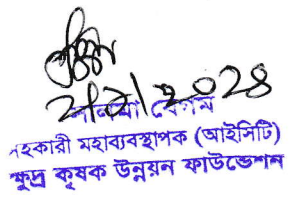 ২০২৪
বেগম
সহকারী মহাব্যবস্থাপক (আইসিটি)
ক্ষুদ্র কৃষক উন্নয়ন ফাউন্ডেশন